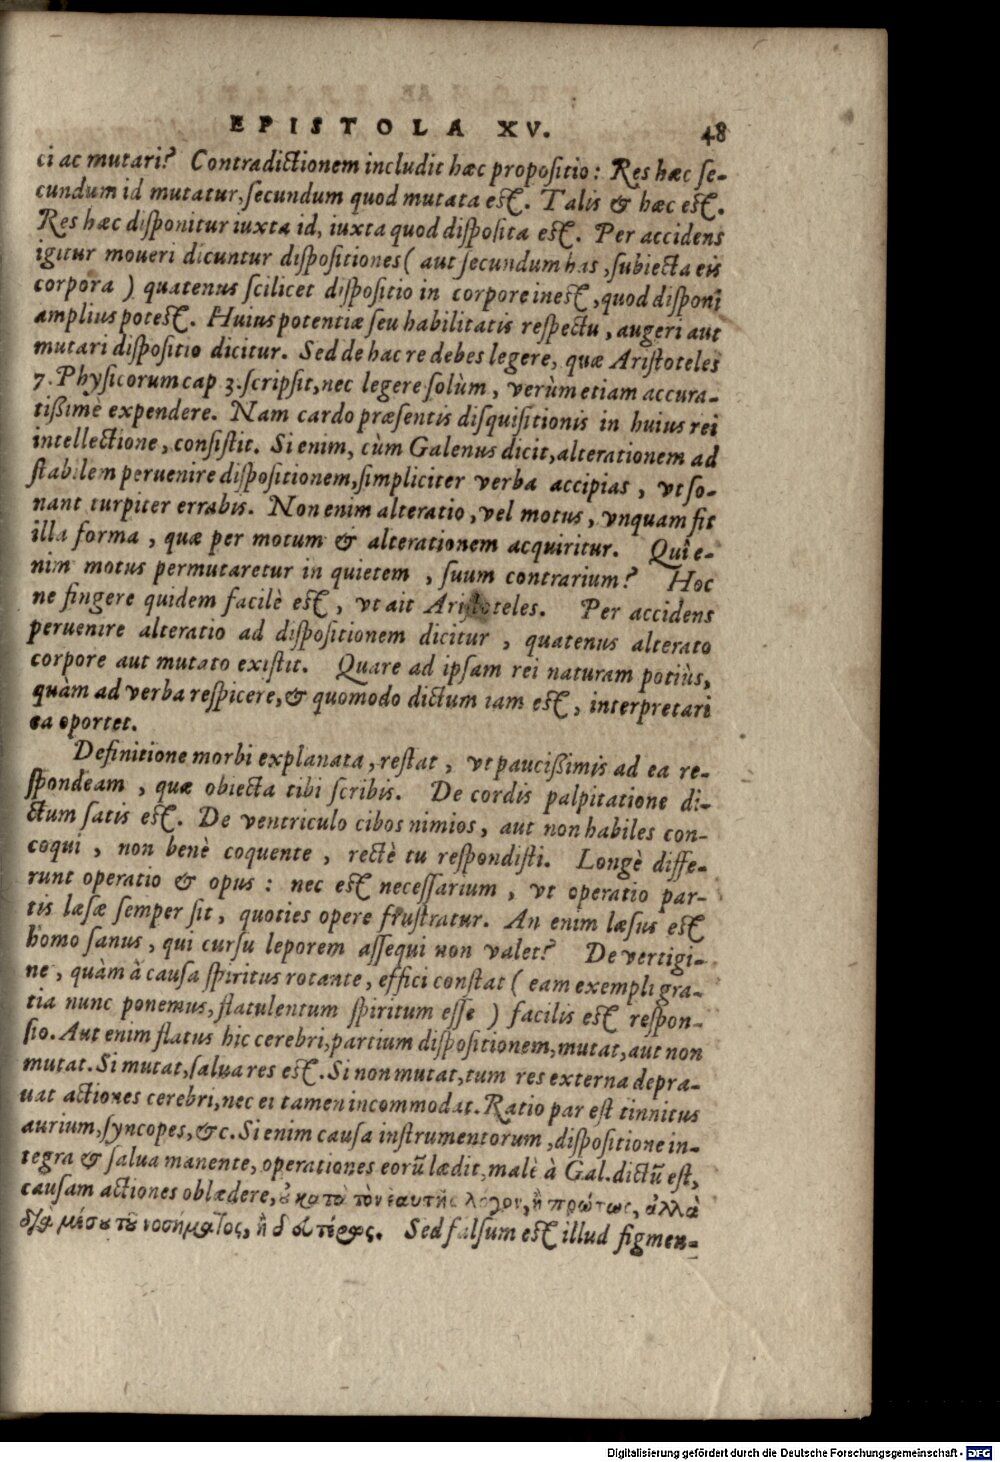 EPISTOLA XV. 48
ci ac mutari? Contradictionem includit hæc propositio: Res hæc se-
cundum id mutatur, secundum quod mutata est. Talis & hæc est.
Res hæc disponitur iuxta id, iuxta quod disposita est. Per accidens
igitur moueri dicuntur dispositiones (aut secundum has, subiecta eis
corpora) quatenus scilicet dispositio in corpore inest, quod disponi
amplius potest. Huius potentiæ seu habilitatis respectu, augeri aut
mutari dispositio dicitur. Sed de hac re debes legere, quæ Aristoteles
7. Physicorum cap 3. scripsit, nec legere solùm, verùm etiam accura-
tißimè expendere. Nam cardo præsentis disquisitionis in huius rei
intellectione, consistit. Si enim, cùm Galenus dicit, alterationem ad
stabilem peruenire dispositionem, simpliciter verba accipias, vt so-
nant turpiter errabis. Non enim alteratio, vel motus, vnquam fit
illa forma, quæ per motum & alterationem acquiritur. Quî e-
nim motus permutaretur in quietem, suum contrarium? Hoc
ne fingere quidem facilè est, vt ait Aristoteles. Per accidens
peruenire alteratio ad dispositionem dicitur, quatenus alterato
corpore aut mutato existit. Quare ad ipsam rei naturam potiùs,
quàm ad verba respicere, & quomodo dictum iam est, interpretari
ea oportet.
Definitione morbi explanata, restat, vt paucißimis ad ea re-
spondeam, quæ obiecta tibi scribis. De cordis palpitatione di-
ctum satis est. De ventriculo cibos nimios, aut non habiles con-
coqui, non benè coquente, rectè tu respondisti. Longè diffe-
runt operatio & opus: nec est necessarium, vt operatio par-
tis læsæ semper sit, quoties opere frustratur. An enim læsus est
homo sanus, qui cursu leporem assequi non valet? De vertigi-
ne, quàm à causa spiritus rotante, effici constat (eam exempli gra-
tia nunc ponemus, flatulentum spiritum esse) facilis est respon-
sio. Aut enim flatus hic cerebri, partium dispositionem, mutat, aut non
mutat. Si mutat, salua res est. Si non mutat, tum res externa depra-
uat actiones cerebri, nec ei tamen incommodat. Ratio par est tinnitus
aurium, syncopes, &c. Si enim causa instrumentorum, dispositione in-
tegra & salua manente, operationes eorũ lædit, malè à Gal. dictũ est,
causam actiones oblædere, ȣ̓ κατὰ τὸν ἑαυτῆς λόγον, ἢ πρώτως, ἀλλὰ
διὰ μέσου τοῦ νοσήματος, ἢ δευτέρως. Sed falsum est illud figmen-
Digitalisierung gefördert durch die Deutsche Forschungsgemeinschaft - DFG